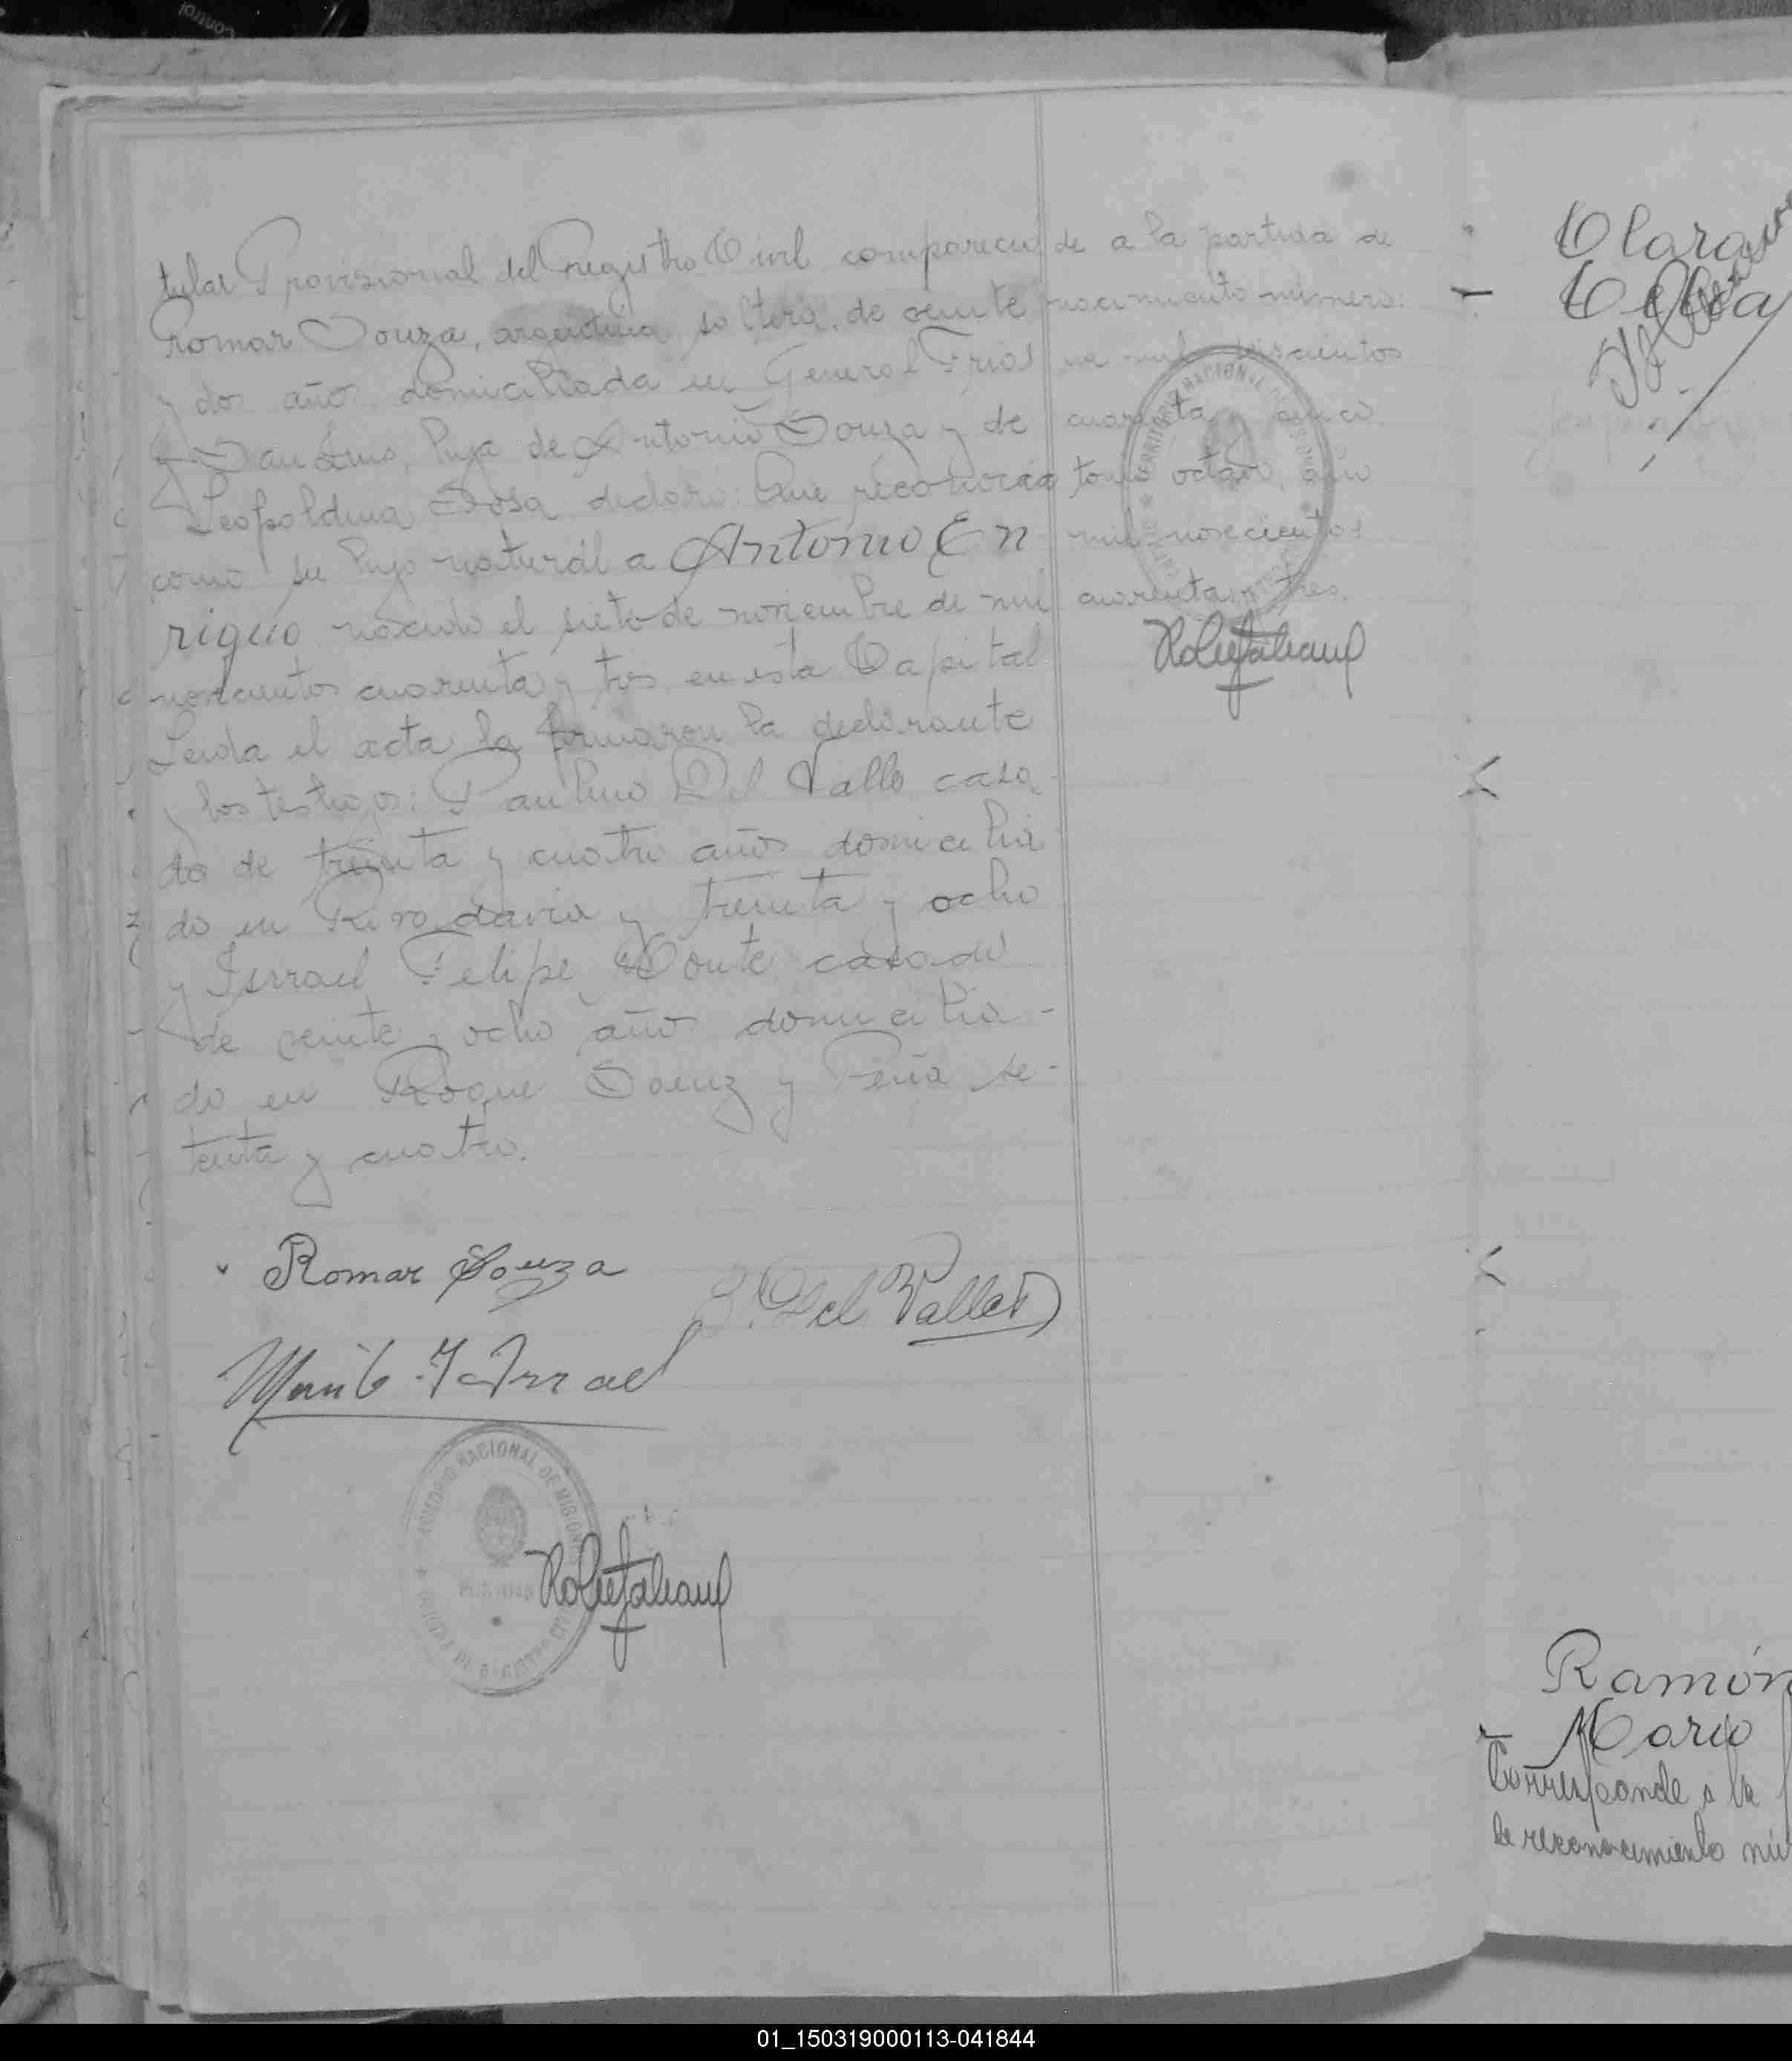 control
tular Provisional del Registro Civil compareció
Romar Souza, argentina, soltera, de veinte
y dos años domiciliada en General Frias
y San Luis, hija de Antonio Souza y de
Leopoldina Sosa declaró: Que reconocia
como su hijo natural a Antonio En
rique nacido el siete de noviembre de mil
novecientos cuarenta y tres en esta Capital
Leida el acta la firmaron la declarante
y los testigos: Paulino Del Valle casa
do de treinta y cuatro años domicilia
do en Rivadavia y treinta y ocho
y Isrrael Felipe casado
de veinte y ocho años domicilia-
do en Roque Saenz y Peña se-
tenta y cuatro.
de a la partida de
nacimiento número:
mil seiscientos
cuarenta y cinco
tomo octavo, año
mil novecientos
cuarenta y tres.
Romar Souza
Del Valle
TERRITORIO NACIONAL DE MISIONES
POSADAS
Clara
Celia
Ramón
Mario
Corresponde a la
de reconocimiento nú
01_150319000113-041844